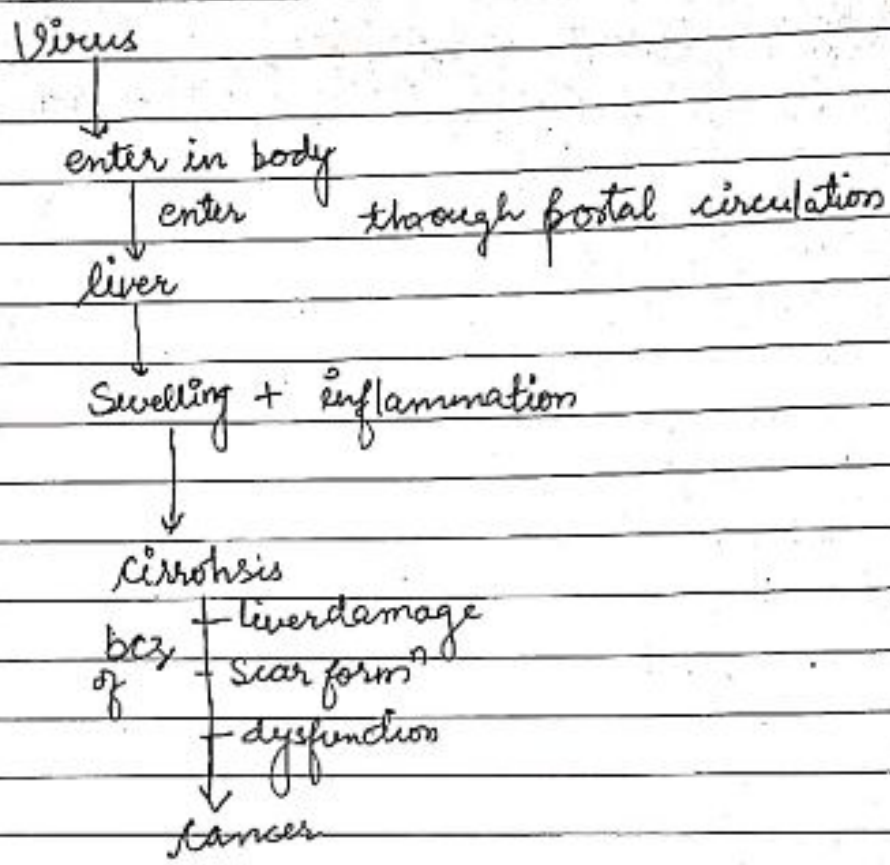 Virus
enter in body
enter though portal circulation
liver
Swelling + inflammation
Cirrohsis
- liverdamage
bcz
of - Scar formⁿ
- dysfunction
cancer